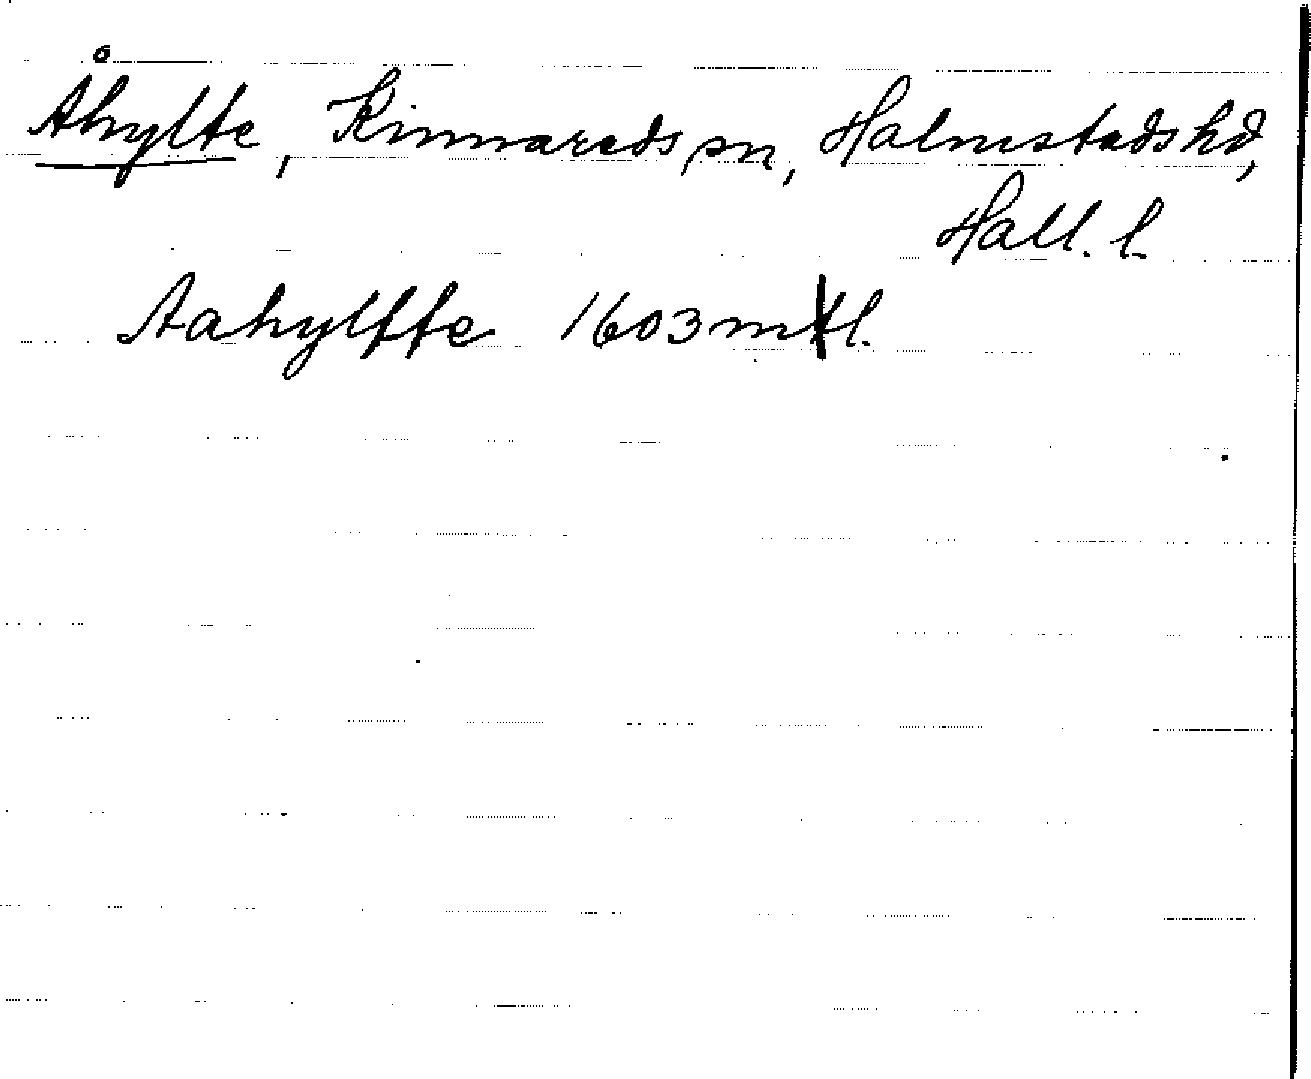 Åhylte, Kinnareds sn, Halmstads hd,
Hall. l.
Aahylfte 1603 mtl.